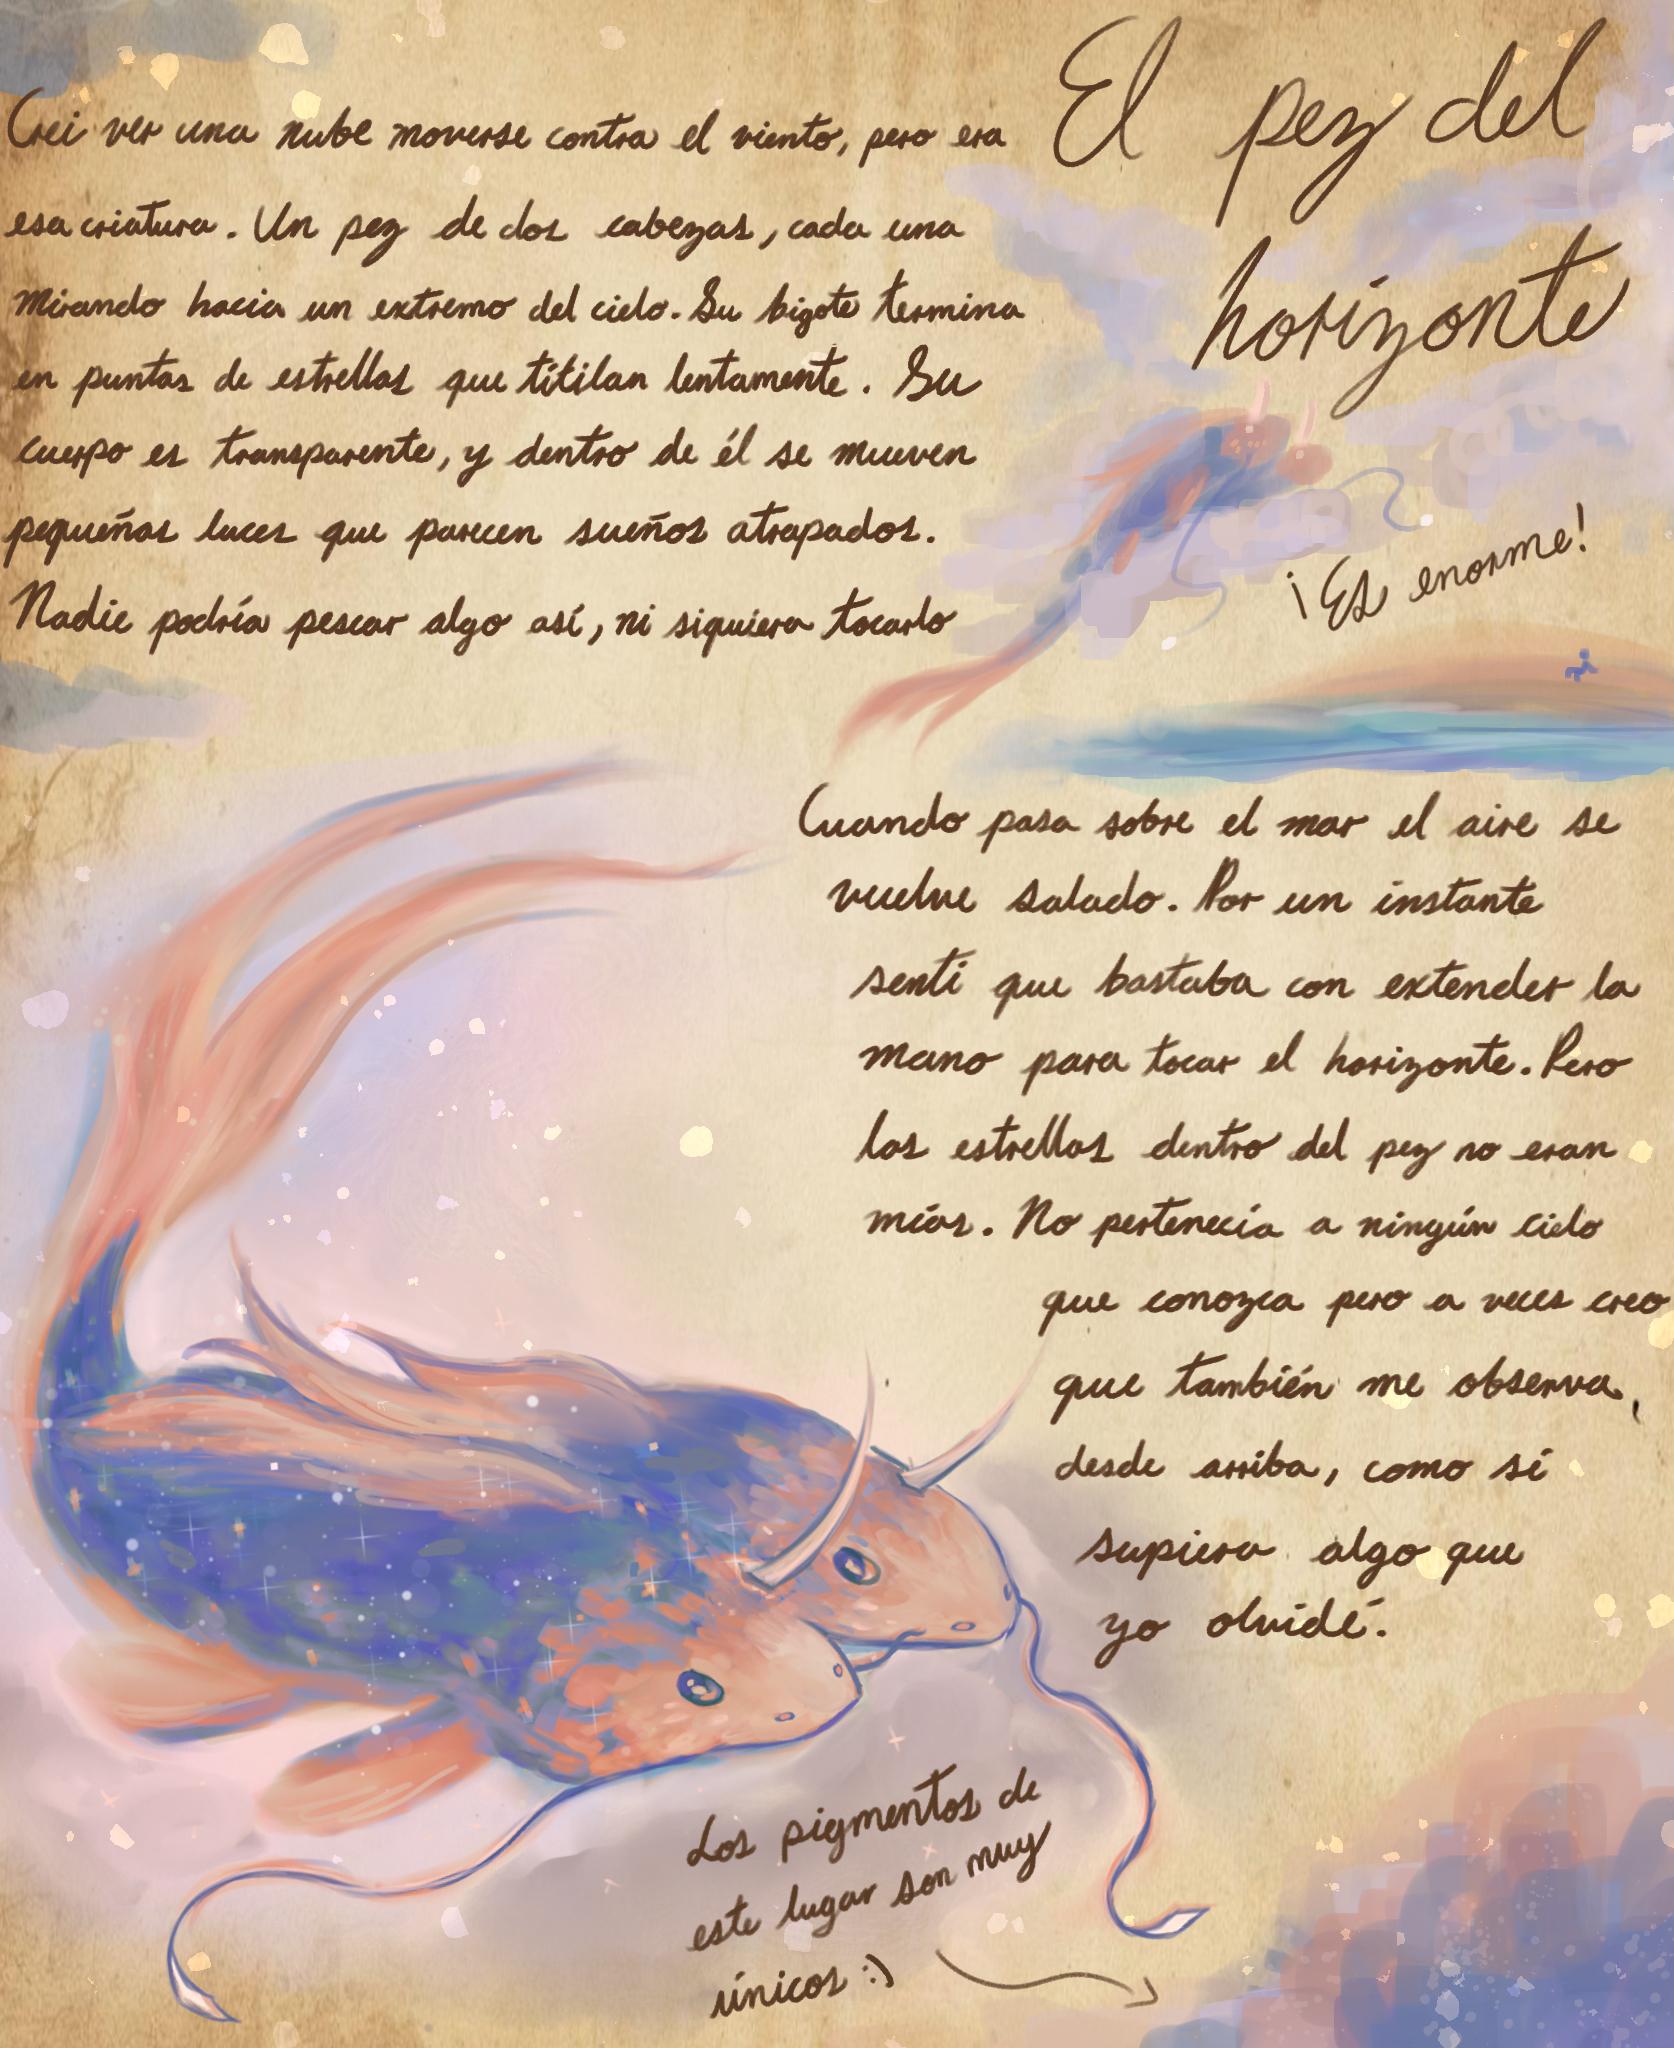 El pez del
horizonte
Crei ver una nube moverse contra el viento, pero era
esa criatura. Un pez de dos cabezas, cada una
mirando hacia un extremo del cielo. Su bigote termina
en puntas de estrellas que titilan lentamente. Su
cuerpo es transparente, y dentro de él se mueven
pequeñas luces que parecen sueños atrapados.
Nadie podría pescar algo así, ni siquiera tocarlo
¡Es enorme!
Cuando pasa sobre el mar el aire se
vuelve salado. Por un instante
senti que bastaba con extender la
mano para tocar el horizonte. Pero
las estrellas dentro del pez no eran
mías. No pertenecía a ningún cielo
que conozca pero a veces creo
que también me observa,
desde arriba, como si
supiera algo que
yo olvidé.
Los pigmentos de
este lugar son muy
únicos :)